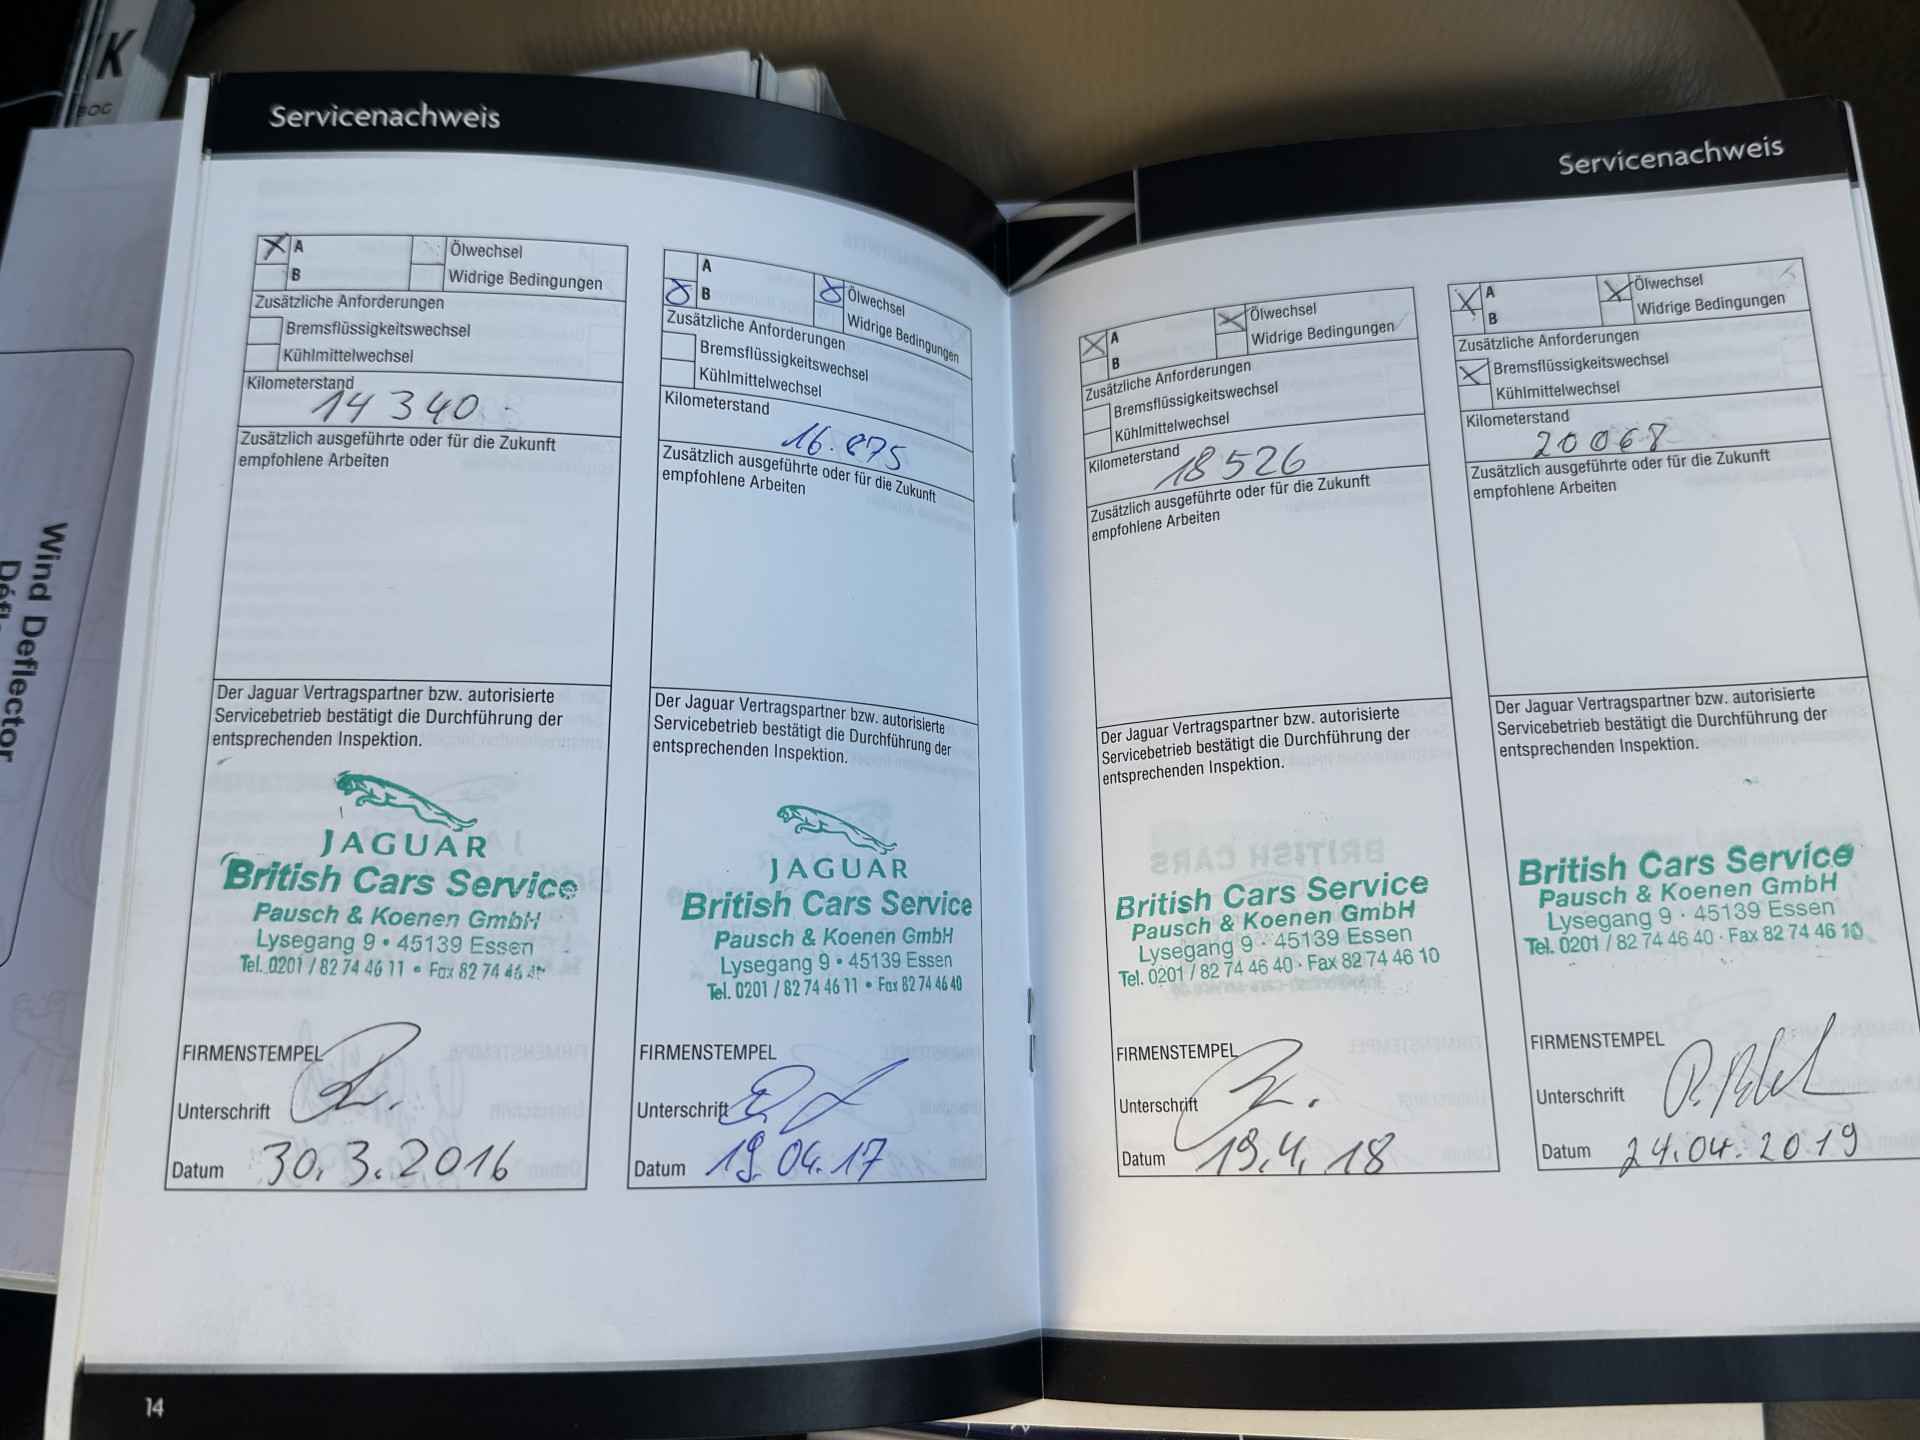 K
Wind Deflector
Servicenachweis
A
B
Ölwechsel
Widrige Bedingungen
Zusätzliche Anforderungen
Bremsflüssigkeitswechsel
Kühlmittelwechsel
Kilometerstand
14 340
Zusätzlich ausgeführte oder für die Zukunft
empfohlene Arbeiten
Der Jaguar Vertragspartner bzw. autorisierte
Servicebetrieb bestätigt die Durchführung der
entsprechenden Inspektion.
JAGUAR
British Cars Service
Pausch & Koenen GmbH
Lysegang 9 • 45139 Essen
Tel. 0201 / 82 74 46 11 • Fax 82 74 46
FIRMENSTEMPEL
Unterschrift
Datum 30.3.2016
A
B
Ölwechsel
Widrige Bedingungen
Zusätzliche Anforderungen
Bremsflüssigkeitswechsel
Kühlmittelwechsel
Kilometerstand
16.875
Zusätzlich ausgeführte oder für die Zukunft
empfohlene Arbeiten
Der Jaguar Vertragspartner bzw. autorisierte
Servicebetrieb bestätigt die Durchführung der
entsprechenden Inspektion.
JAGUAR
British Cars Service
Pausch & Koenen GmbH
Lysegang 9 • 45139 Essen
Tel. 0201 / 82 74 46 11 • Fax 82 74 46 40
FIRMENSTEMPEL
Unterschrift
Datum 19.04.17
14
Servicenachweis
A
B
Ölwechsel
Widrige Bedingungen
Zusätzliche Anforderungen
Bremsflüssigkeitswechsel
Kühlmittelwechsel
Kilometerstand
18526
Zusätzlich ausgeführte oder für die Zukunft
empfohlene Arbeiten
Der Jaguar Vertragspartner bzw. autorisierte
Servicebetrieb bestätigt die Durchführung der
entsprechenden Inspektion.
British Cars Service
Pausch & Koenen GmbH
Lysegang 9 · 45139 Essen
Tel. 0201 / 82 74 46 40 · Fax 82 74 46 10
FIRMENSTEMPEL
Unterschrift
Datum 19.4.18
A
B
Ölwechsel
Widrige Bedingungen
Zusätzliche Anforderungen
Bremsflüssigkeitswechsel
Kühlmittelwechsel
Kilometerstand
20068
Zusätzlich ausgeführte oder für die Zukunft
empfohlene Arbeiten
Der Jaguar Vertragspartner bzw. autorisierte
Servicebetrieb bestätigt die Durchführung der
entsprechenden Inspektion.
British Cars Service
Pausch & Koenen GmbH
Lysegang 9 · 45139 Essen
Tel. 0201 / 82 74 46 40 · Fax 82 74 46 10
FIRMENSTEMPEL
Unterschrift
Datum 24.04.2019